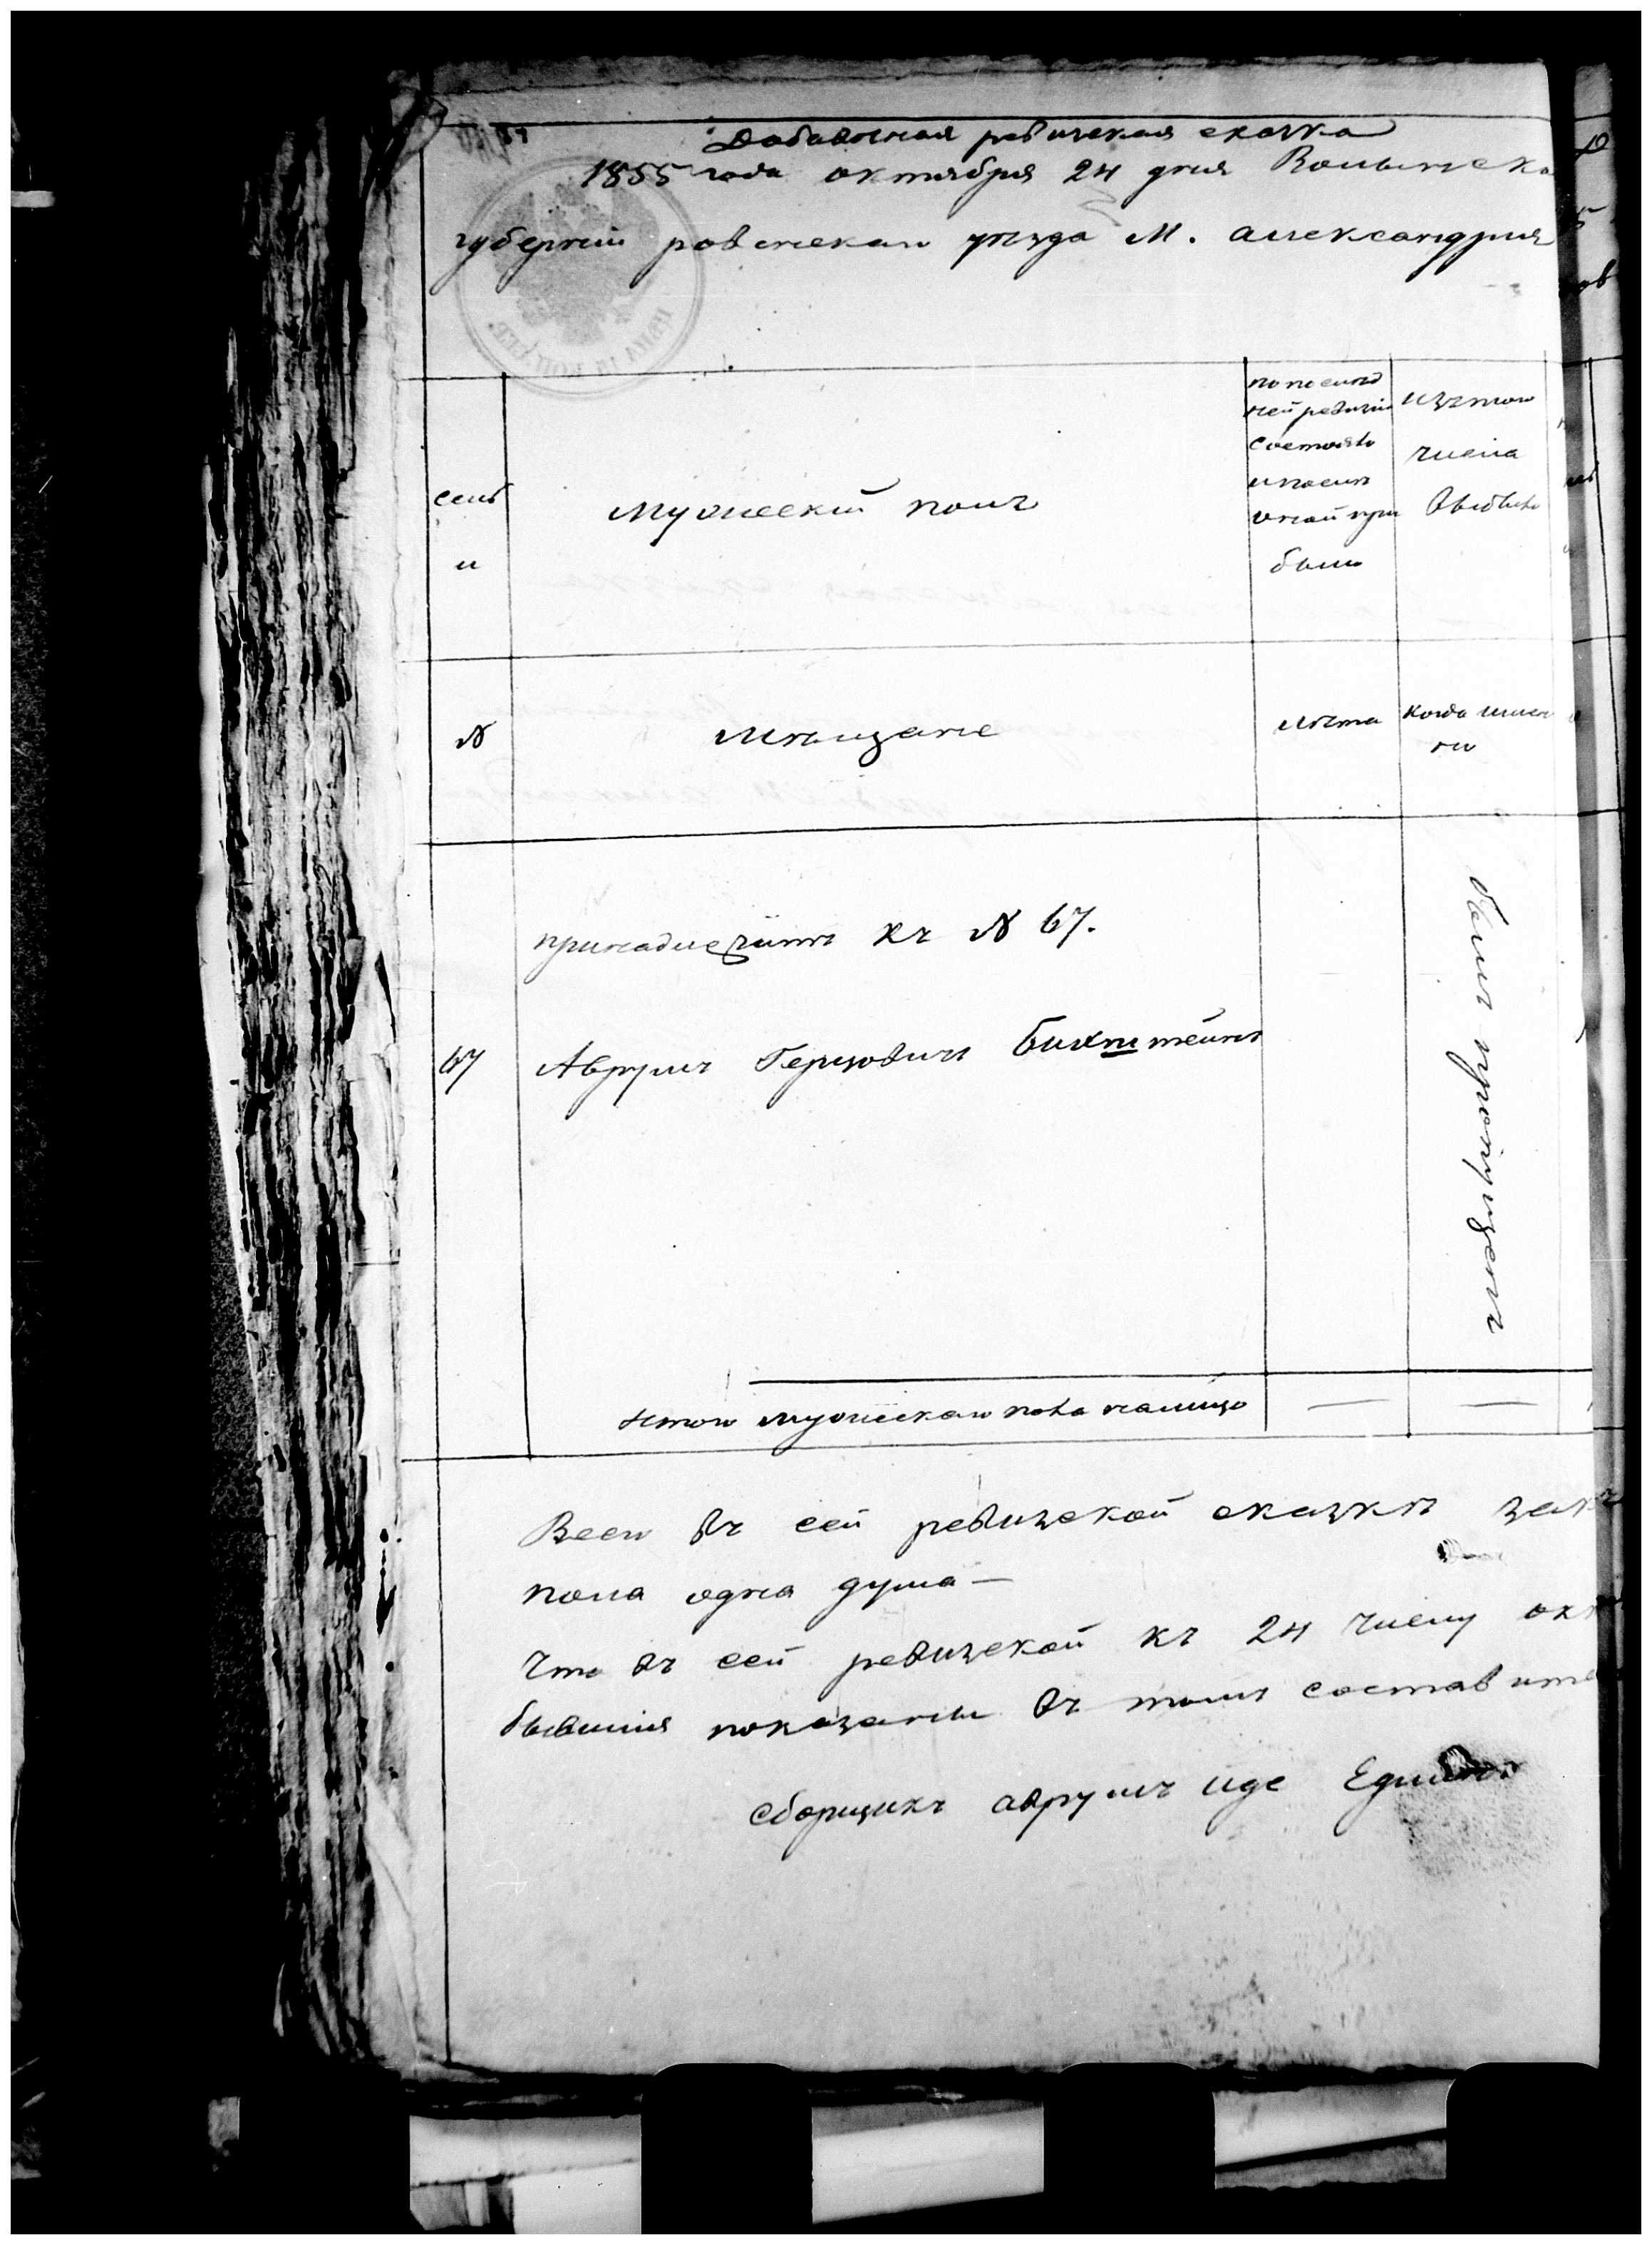 Добавочная ревизская сказка
1855 года октября 24 дня Волынска
губернии ровенскаго уезда М. александрия
семь
и
мужескій полъ
по послед
ней ревизіи
состояло
и после
оной при
было
изътого
числа
выбыло
№
мещане
лета
когда имен
но
принадлежитъ къ № 67.
67
Аврумъ Герцовичъ Бихштейнъ
былъ пропущенъ
итого мужескаго пола налицо
Всего въ сей ревизской сказки
пола одна душа —
Что въ сей ревизской къ 24 числу окт
бывшия показаны въ томъ состав
сборщикъ аврумъ иде